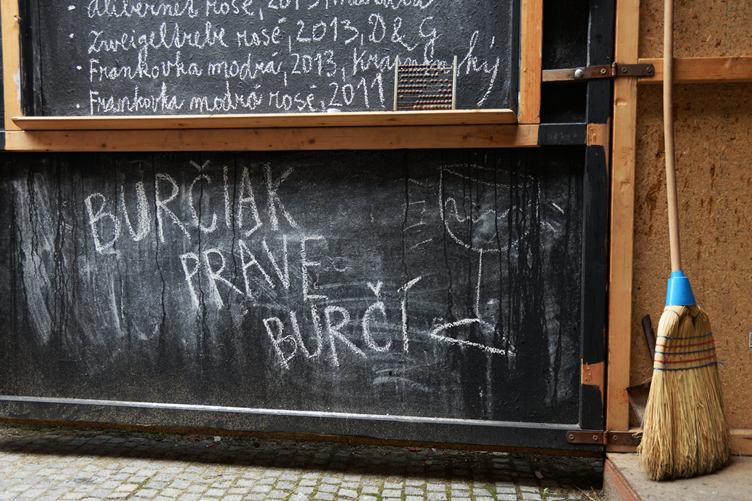 · Alibernet rosé, 2013,
· Zweigeltrebe rosé, 2013, D&G
· Frankovka modrá, 2013,
· Frankovka modrá rosé, 2011
BURČIAK
PRAVE
BURČÍ